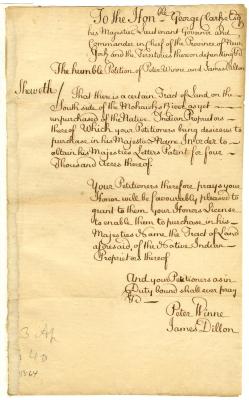 To the Honble George Clarke Esq
his Majestys Lieutenant Governor and
Commander in Chief of the Province of New
York and the Territories thereon depending &c
The humble Petition of Peter Winne and James Dillon
Sheweth /
That there is a certain Tract of Land on the
South side of the Mohawks River as yet
unpurchased of the Native Indian Proprietors
thereof Which your Petitioners being desirous to
purchase in his Majestys Name In order to
obtain his Majesties Letters Patent for four
Thousand Acres thereof
Your Petitioners therefore prays your
Honor will be favourably pleased to
grant to them Your Honors License
to enable them to purchase in his
Majestys Name the Tract of Land
aforesaid, of the Native Indian
Proprietors thereof
And your Petitioners as in
Duty bound shall ever pray
&c
Peter Winne
James Dillon